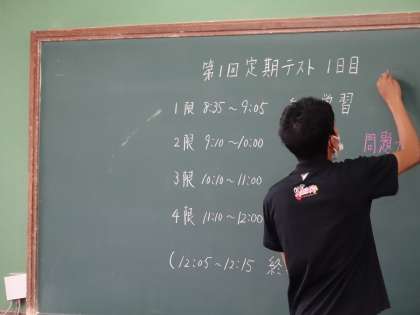 第1回定期テスト 1日目
1限 8:35～9:05 学習
2限 9:10～10:00 問題
3限 10:10～11:00
4限 11:10～12:00
(12:05～12:15 終